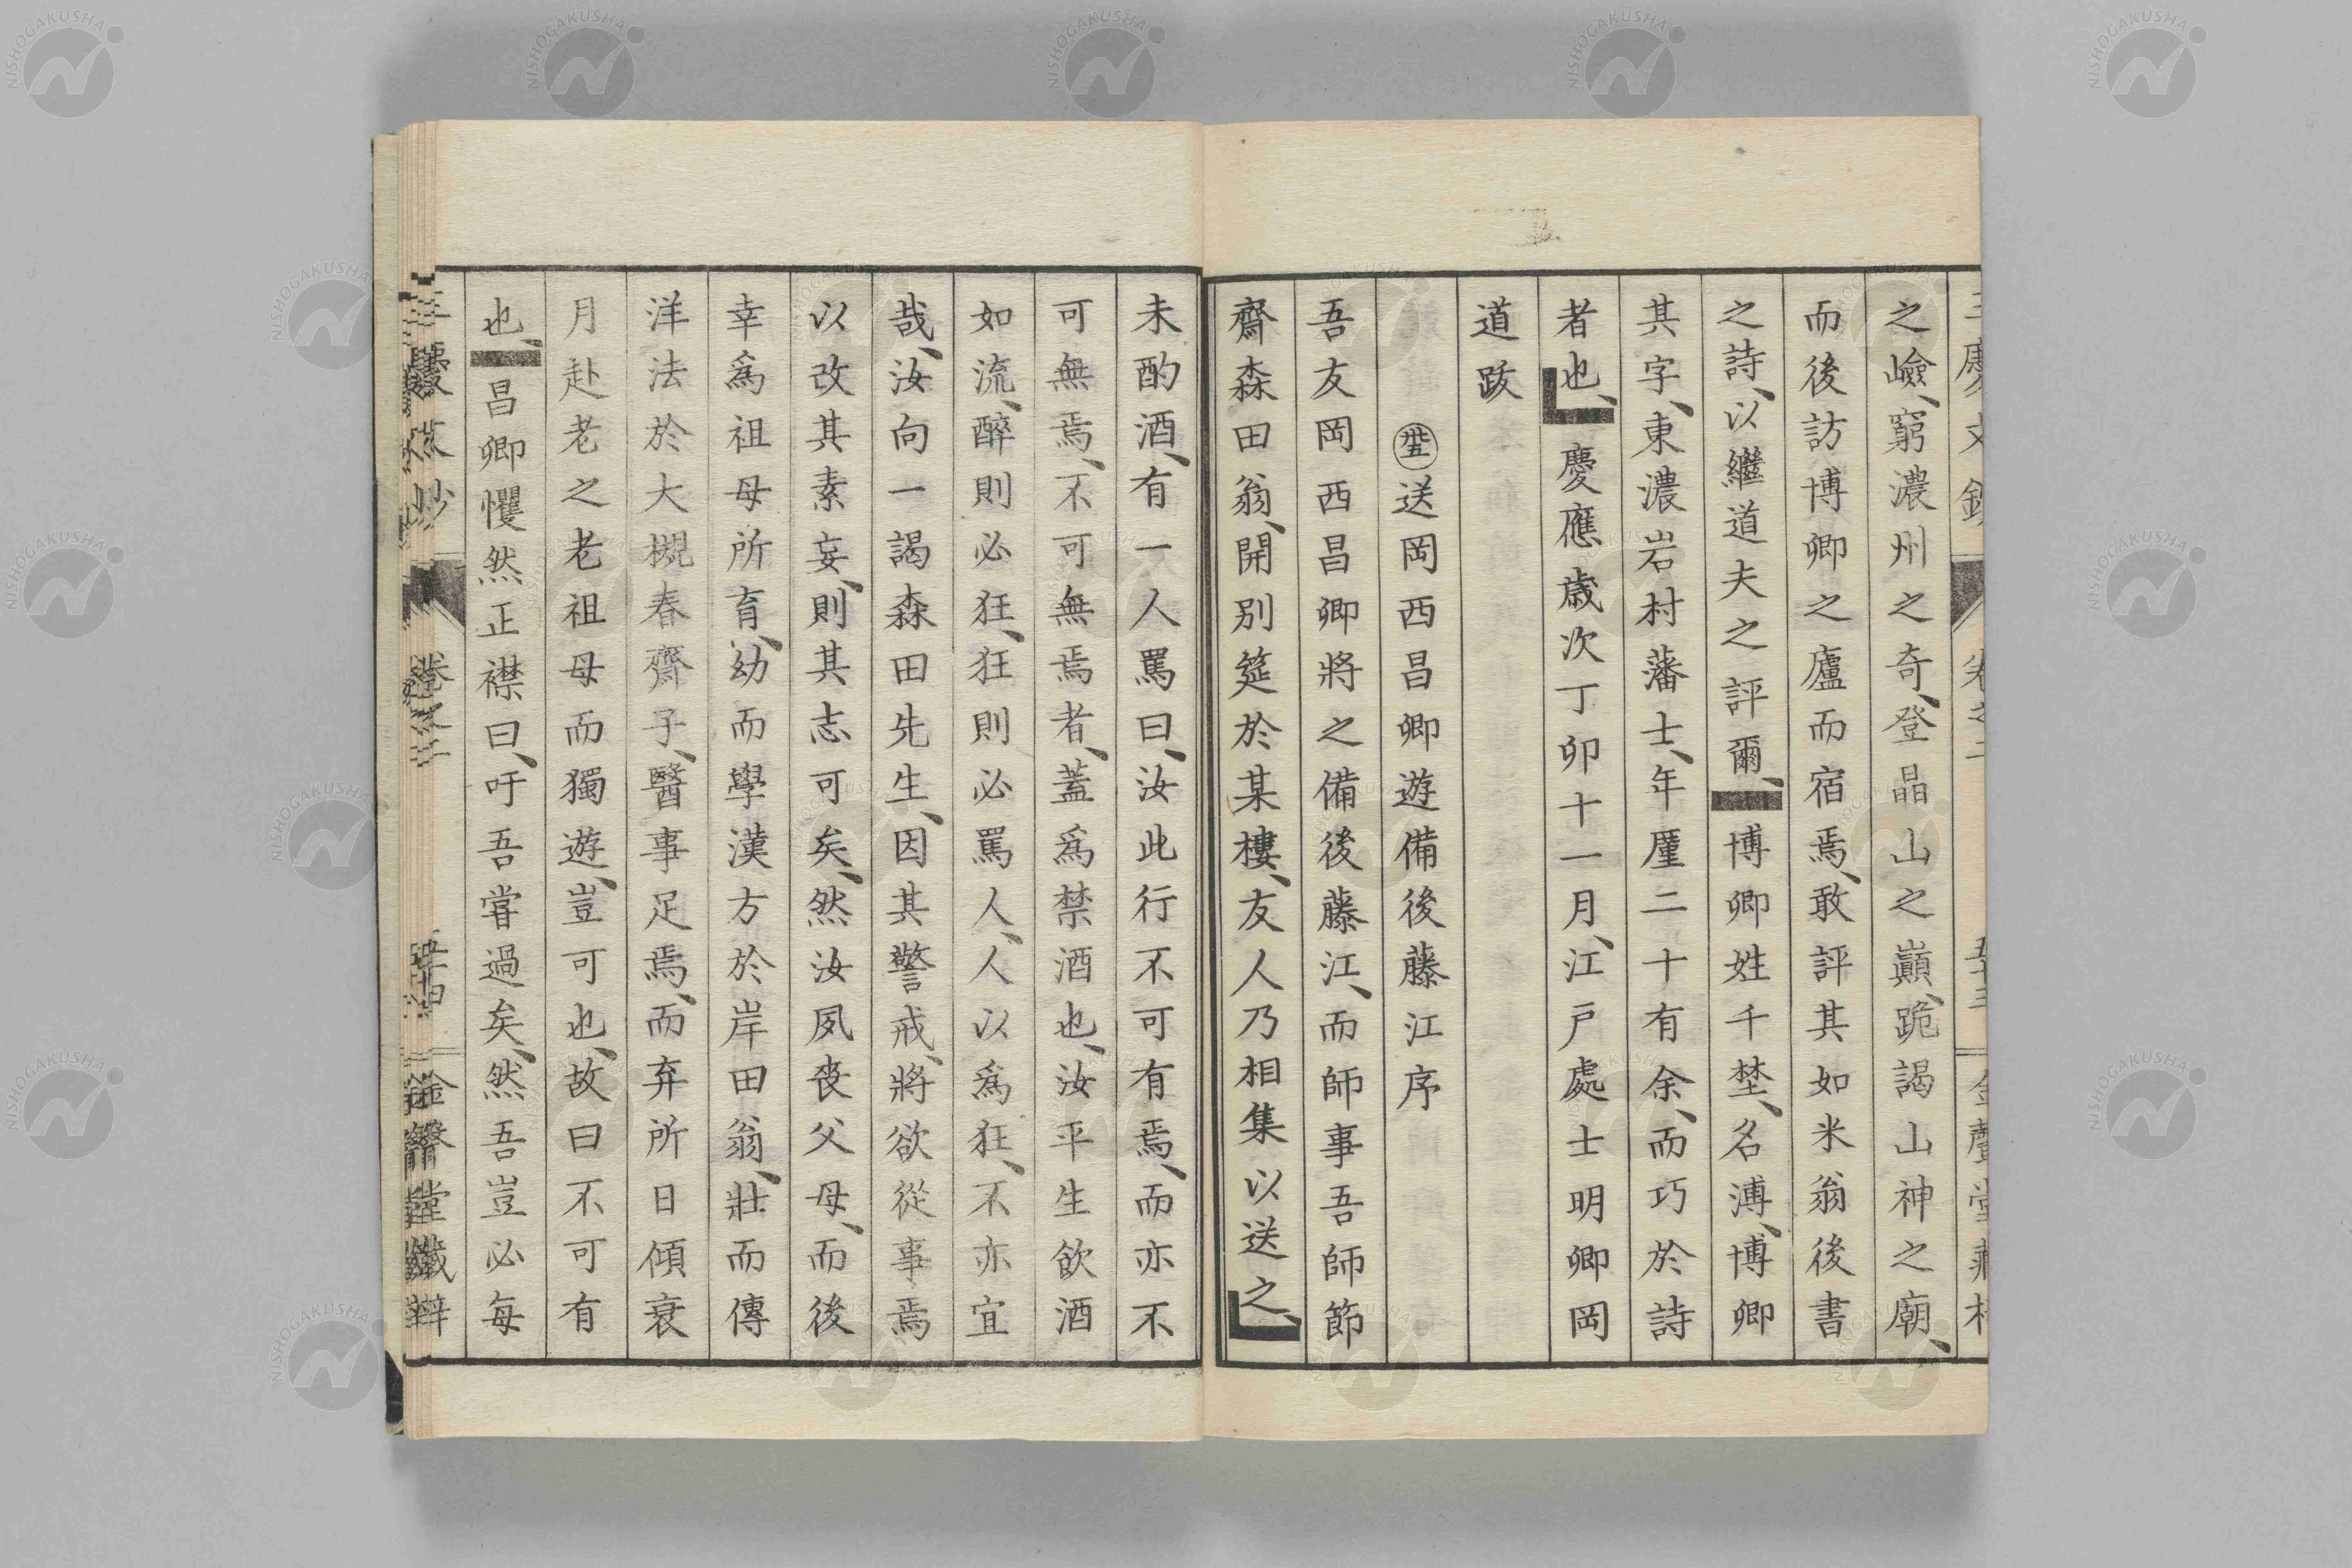 之嶮、窮濃州之奇、登晶山之巔、跪謁山神之廟、
而後訪博卿之廬而宿焉、敢評其如米翁後書
之詩、以繼道夫之評爾、博卿姓千埜、名溥、博卿
其字、東濃岩村藩士、年厪二十有余、而巧於詩
者也、慶應歳次丁卯十一月、江戸處士明卿岡
道跋
㊺送岡西昌卿遊備後藤江序
吾友岡西昌卿將之備後藤江、而師事吾師節
齋森田翁、開別筵於某樓、友人乃相集以送之、
未酌酒、有一人罵曰、汝此行不可有焉、而亦不
可無焉、不可無焉者、蓋爲禁酒也、汝平生飲酒
如流、醉則必狂、狂則必罵人、人以爲狂、不亦宜
哉、汝向一謁森田先生、因其警戒、將欲從事焉
以改其素妄、則其志可矣、然汝夙喪父母、而後
幸爲祖母所育、幼而學漢方於岸田翁、壯而傳
洋法於大槻春齋子、醫事足焉、而弃所日傾衰
月赴老之老祖母而獨遊、豈可也、故曰不可有
也、昌卿懼然正襟曰、吁吾嘗過矣、然吾豈必每
NISHOGAKUSHA